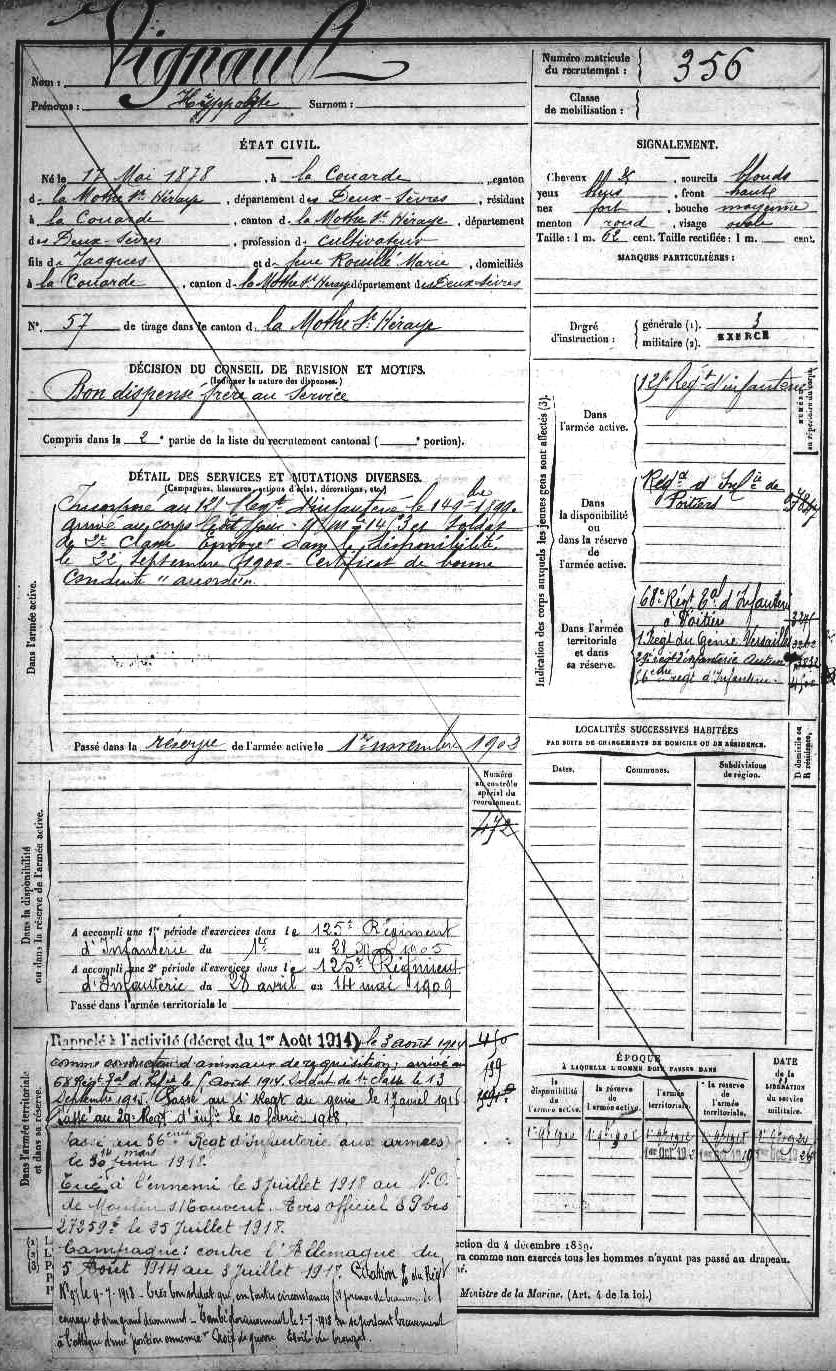 Nom : Vignault
Prénoms : Hyppolyte Surnom :
Numéro matricule du recrutement : 356
Classe de mobilisation :
ÉTAT CIVIL.
Né le 17 Mai 1878, à la Couarde, canton
de la Mothe St Héraye, département des Deux-Sèvres, résidant
à la Couarde, canton de la Mothe St Héraye, département
des Deux-Sèvres, profession de cultivateur
fils de Jacques et de feue Rouillé Marie, domiciliés
à la Couarde, canton de la Mothe St Héraye département des Deux Sèvres
N° 57 de tirage dans le canton de la Mothe St Héraye
SIGNALEMENT.
Cheveux sourcils blonds
yeux bleus, front haut
nez fort, bouche moyenne
menton rond, visage ovale
Taille : 1 m. 62 cent. Taille rectifiée : 1 m. cent.
MARQUES PARTICULIÈRES :
Degré d'instruction : générale (1). 3
militaire (2). EXERCÉ
DÉCISION DU CONSEIL DE REVISION ET MOTIFS.
(Indiquer la nature des dispenses.)
Bon dispensé frère au service
Compris dans la 2e partie de la liste du recrutement cantonal ( e portion).
DÉTAIL DES SERVICES ET MUTATIONS DIVERSES.
(Campagnes, blessures, actions d'éclat, décorations, etc.)
Dans l'armée active.
Incorporé au Régt d'Infanterie le 14 9bre 1899.
arrivé au corps le dit jour. Soldat
de 2e Classe Envoyé dans la disponibilité
le 22 Septembre 1900 - Certificat de bonne
conduite "accordé".
Passé dans la réserve de l'armée active le 1er novembre 1902
Indication des corps auxquels les jeunes gens sont affectés (3).
NUMÉRO au répertoire du corps.
Dans l'armée active.
125e Régt d'infanterie
Dans la disponibilité ou dans la réserve de l'armée active.
Régt d'Infie de
Poitiers
Dans l'armée territoriale et dans sa réserve.
68e Régt Tal d'Infanterie
à Poitiers
1 Régt du Génie Versailles
29e régt d'infanterie Autun
56eme régt d'Infanterie
LOCALITÉS SUCCESSIVES HABITÉES
PAR SUITE DE CHANGEMENTS DE DOMICILE OU DE RÉSIDENCE.
Dates. Communes. Subdivisions de région. D domicile ou R résidence.
Numéro au contrôle spécial du recrutement.
472
Dans la disponibilité ou dans la réserve de l'armée active.
A accompli une 1re période d'exercices dans le 125e Régiment
d'Infanterie du 1er au 28 1905
A accompli une 2e période d'exercices dans le 125e Régiment
d'Infanterie du 28 avril au 14 mai 1909
Passé dans l'armée territoriale le
Dans l'armée territoriale et dans sa réserve.
Rappelé à l'activité (décret du 1er Août 1914) le 3 août 1914
comme conducteur d'animaux de réquisition; arrivé au
68 Régt Tal d'Infie le 5 août 1914. Soldat de 1e classe le 13
Septembre 1915. Passé au 1e Régt du génie le 17 avril 1916
Passé au 29e Régt d'inf. le 10 février 1918.
Passé au 56eme Régt d'Infanterie aux armées
le 30 mars 1918.
Tué à l'ennemi le 3 juillet 1918 au
de Moulin s/Touvent. Avis officiel
27259 25 Juillet 1918.
Campagne : contre l'Allemagne du
5 Août 1914 au 3 Juillet 1918. Citation O. du Régt
N° le 9-7-1918 - Très bon soldat qui en toutes circonstances fit preuve de beaucoup de
courage et d'un grand dévouement - Tombé glorieusement le 3-7-1918 en se portant bravement
à l'attaque d'une position ennemie - Croix de guerre Etoile de bronze.
ÉPOQUE
À LAQUELLE L'HOMME DOIT PASSER DANS
la disponibilité de l'armée active. la réserve de l'armée active. l'armée territoriale. la réserve de l'armée territoriale.
DATE de la LIBÉRATION du service militaire.
ction du 4 décembre 1889.
ra comme non exercés tous les hommes n'ayant pas passé au drapeau.
Ministre de la Marine. (Art. 4 de la loi.)